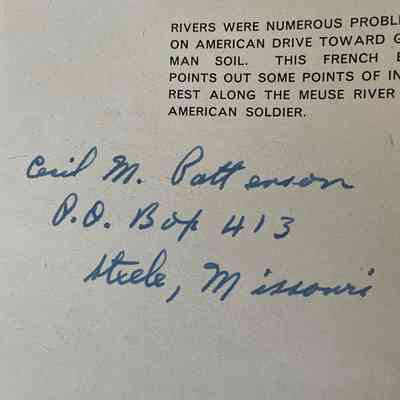 RIVERS WERE NUMEROUS PROBL
ON AMERICAN DRIVE TOWARD G
MAN SOIL. THIS FRENCH B
POINTS OUT SOME POINTS OF IN
REST ALONG THE MEUSE RIVER
AMERICAN SOLDIER.
Cecil M. Patterson
P.O. Box 413
Steele, Missouri